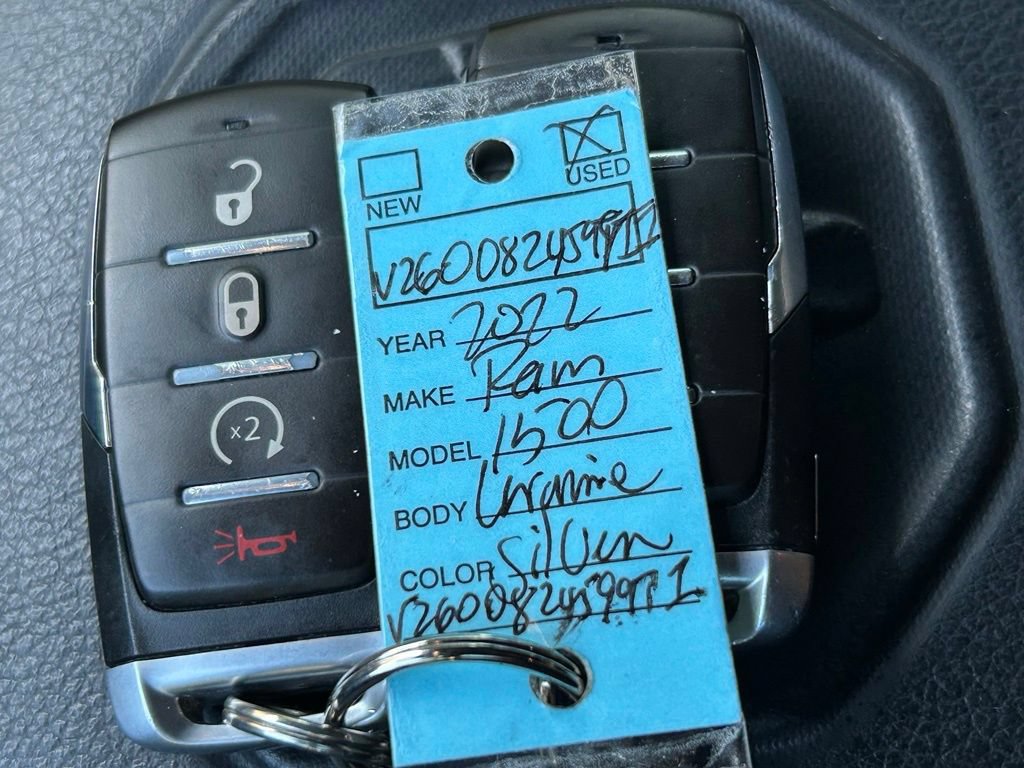 x2
NEW
USED
YEAR 2022
MAKE Ram
MODEL 1500
BODY Laramie
COLOR Silver